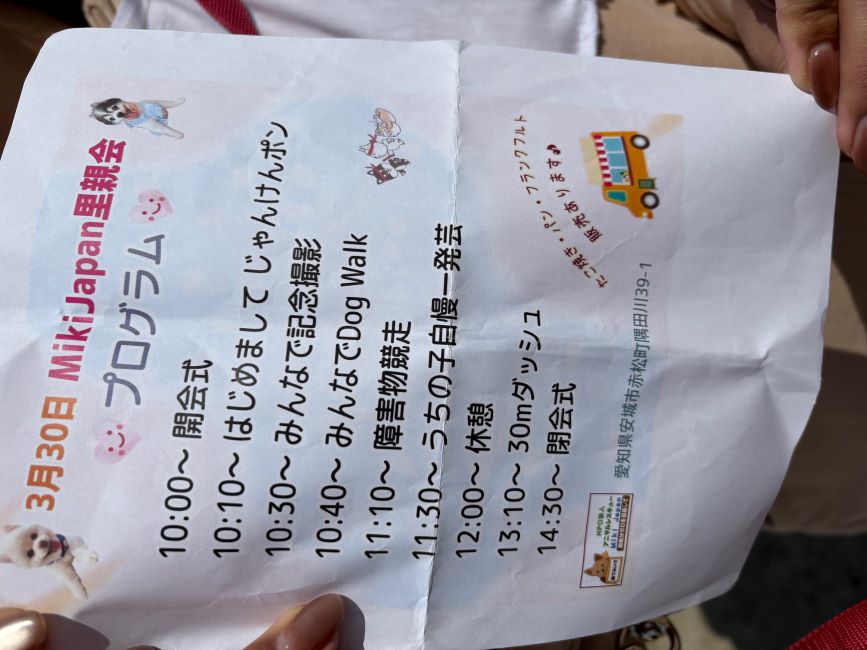 3月30日 MikiJapan里親会
プログラム
10:00～ 開会式
10:10～ はじめまして じゃんけんポン
10:30～ みんなで記念撮影
10:40～ みんなでDog Walk
11:10～ 障害物競走
11:30～ うちの子自慢一発芸
12:00～ 休憩
13:10～ 30mダッシュ
14:30～ 閉会式
たこ焼き・パン・フランクフルト
販売あります♪
NPO法人
アニマルレスキュー
Miki Japan
愛知県安城市赤松町隅田川39-1